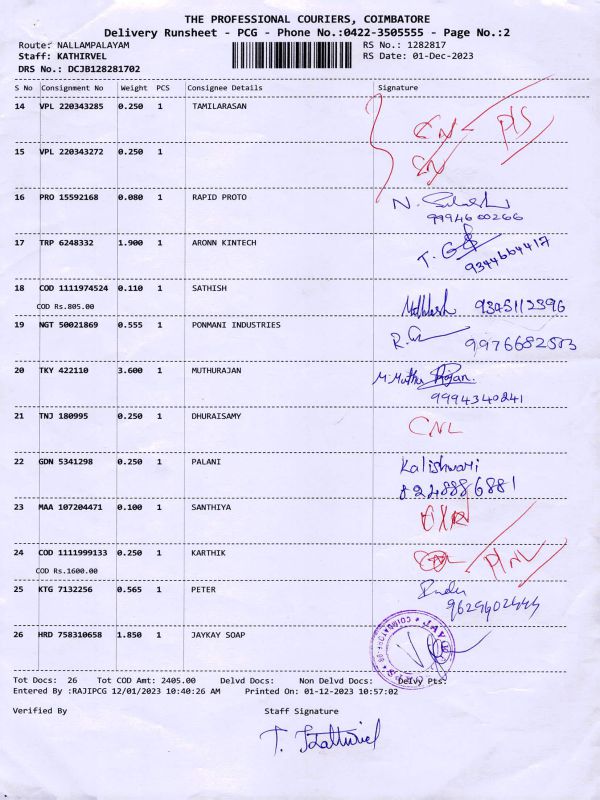 THE PROFESSIONAL COURIERS, COIMBATORE
Delivery Runsheet - PCG - Phone No.:0422-3505555 - Page No.:2
Route: NALLAMPALAYAM RS No.: 1282817
Staff: KATHIRVEL RS Date: 01-Dec-2023
DRS No.: DCJB128281702
S No Consignment No Weight PCS Consignee Details Signature
14 VPL 220343285 0.250 1 TAMILARASAN
15 VPL 220343272 0.250 1
16 PRO 15592168 0.080 1 RAPID PROTO
9994600266
17 TRP 6248332 1.900 1 ARONN KINTECH
9344664417
18 COD 1111974524 0.110 1 SATHISH
COD Rs.805.00
9345112396
19 NGT 50021869 0.555 1 PONMANI INDUSTRIES
20 TKY 422110 3.600 1 MUTHURAJAN
M. Muthu Rajan.
9994340241
21 TNJ 180995 0.250 1 DHURAISAMY CNL
22 GDN 5341298 0.250 1 PALANI Kalishwari
8248886881
23 MAA 107204471 0.100 1 SANTHIYA
24 COD 1111999133 0.250 1 KARTHIK
COD Rs.1600.00
25 KTG 7132256 0.565 1 PETER
26 HRD 758310658 1.850 1 JAYKAY SOAP
Tot Docs: 26 Tot COD Amt: 2405.00 Delvd Docs: Non Delvd Docs: Delvy Pts:
Entered By :RAJIPCG 12/01/2023 10:40:26 AM Printed On: 01-12-2023 10:57:02
Verified By Staff Signature